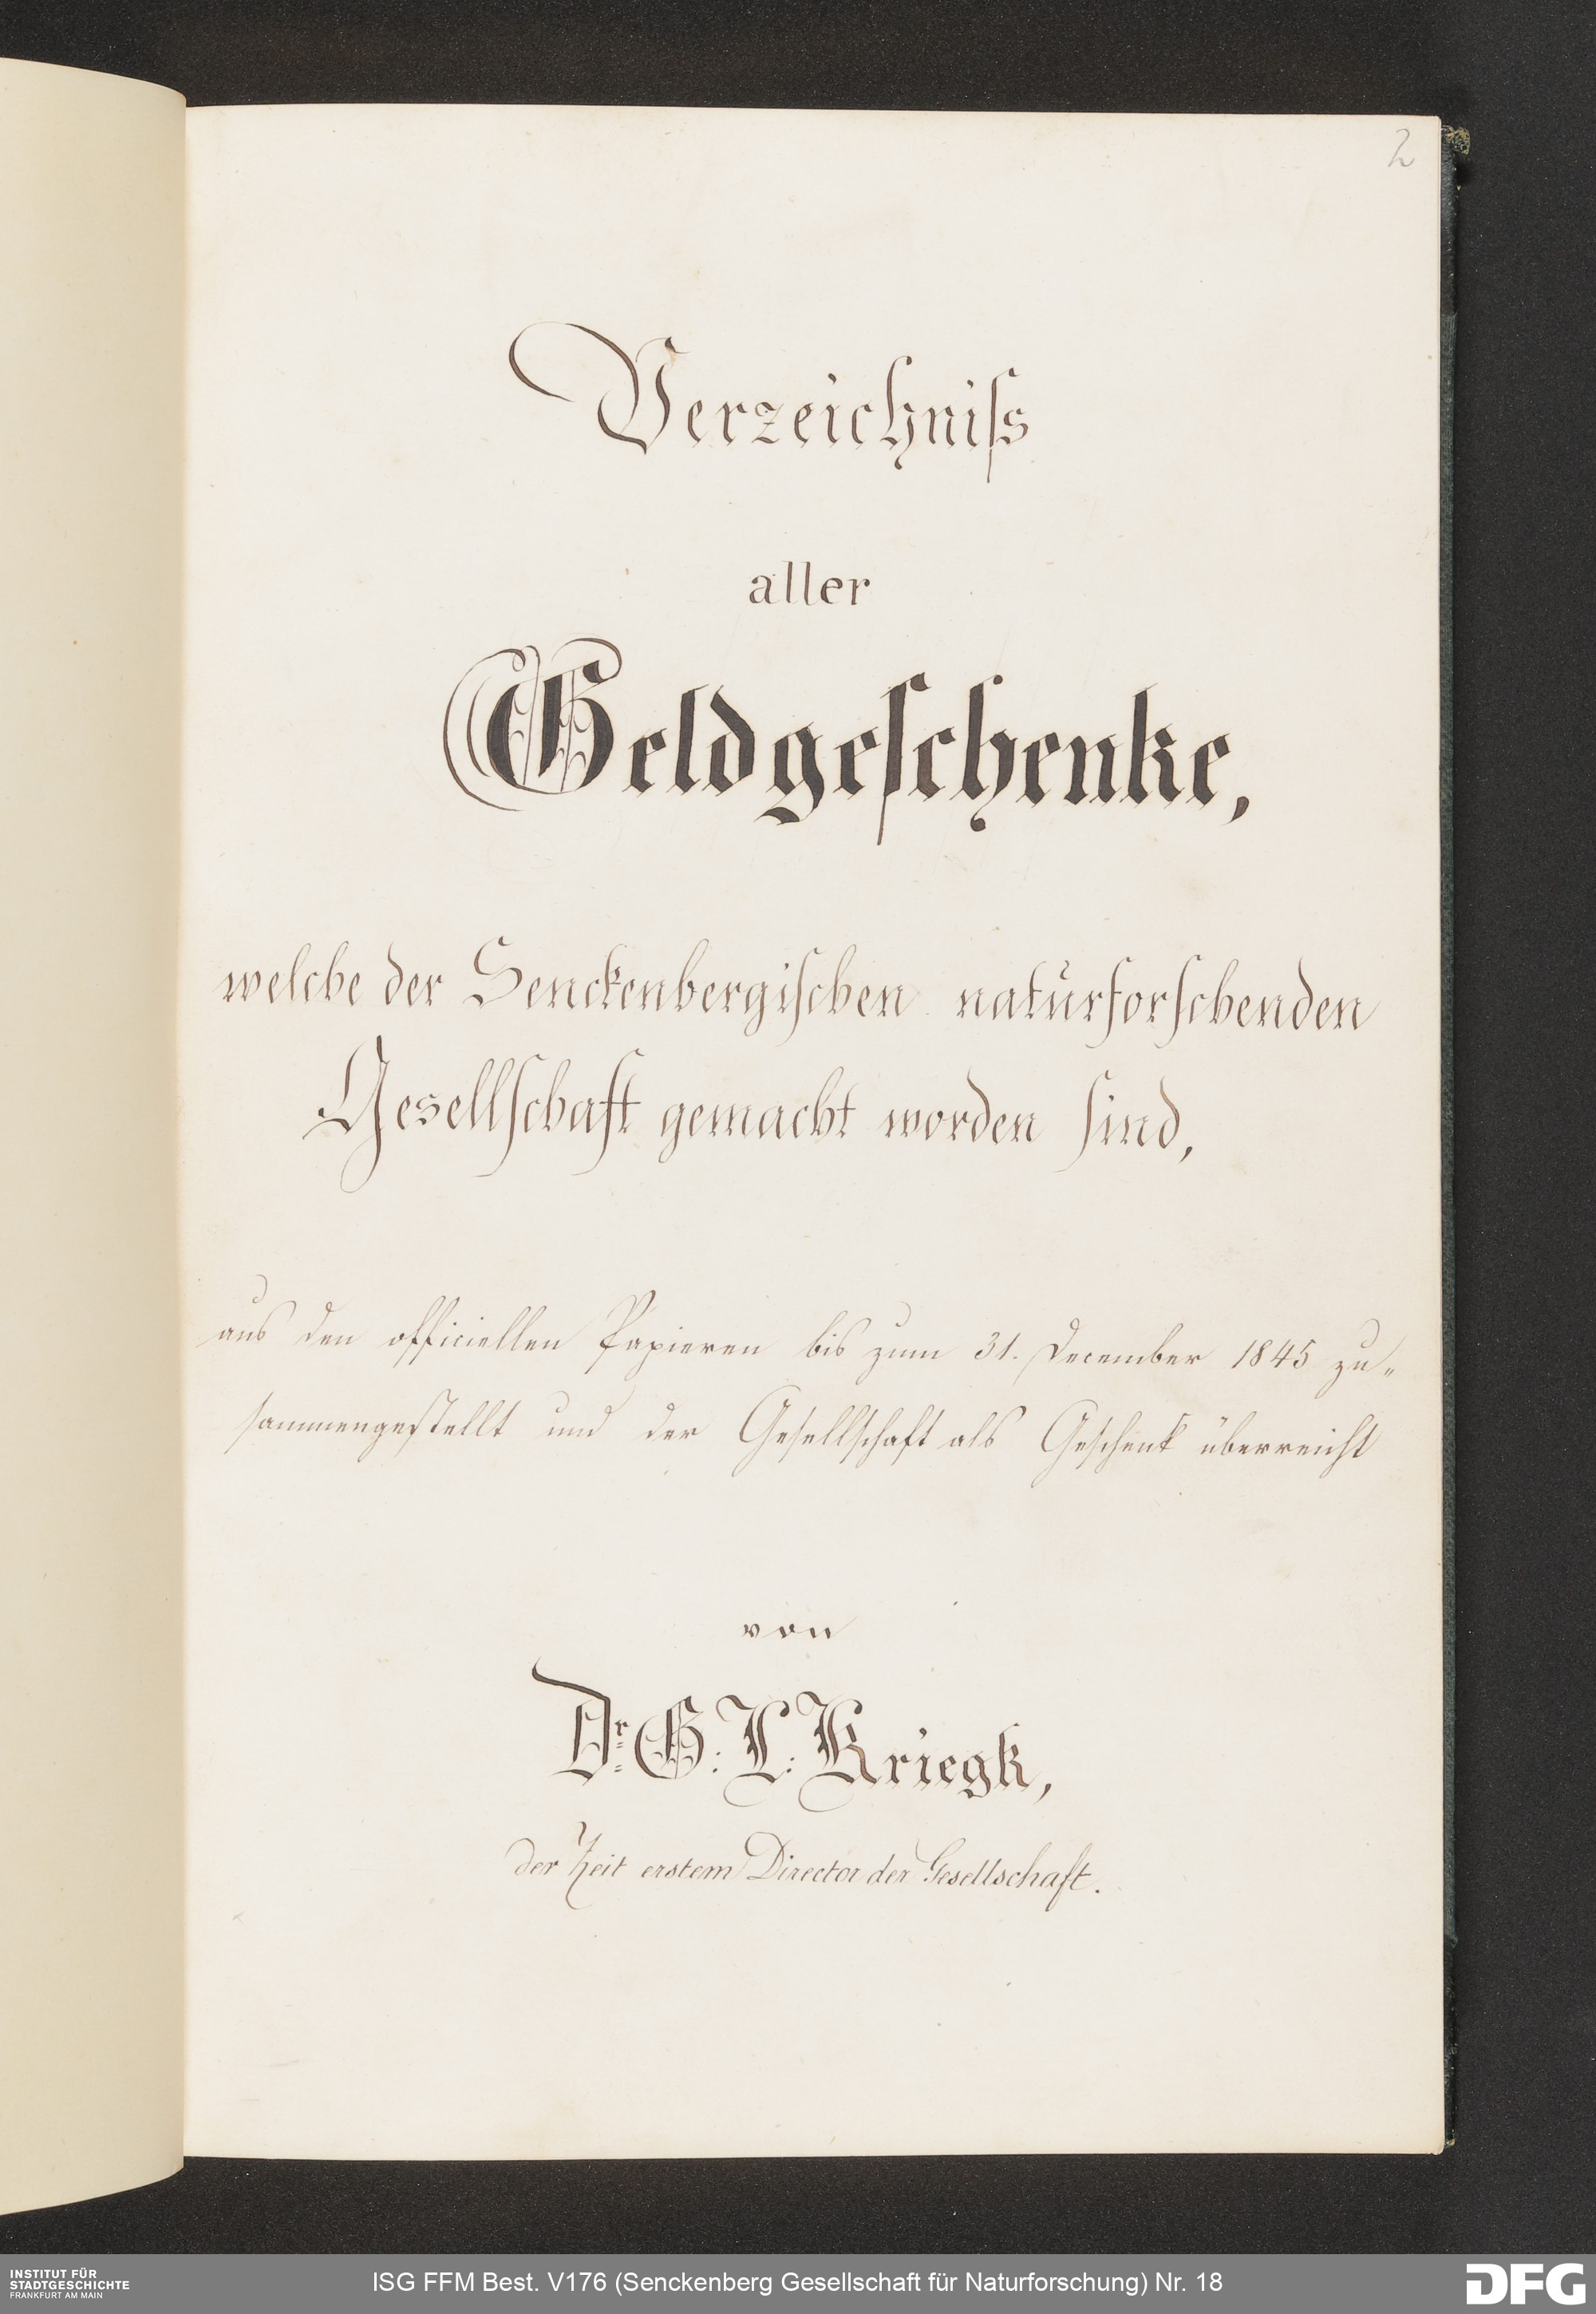 2
Verzeichniſs
aller
Geldgeſchenke,
welche der Senckenbergiſchen naturforſchenden
Geſellſchaft gemacht worden ſind,
aus den officiellen Papieren bis zum 31. December 1845 zu„
sammengeſtellt und der Geſellſchaft als Geſchenk überreicht
von
Dr. G. L. Kriegk,
der Zeit erstem Director der Gesellschaft.
INSTITUT FÜR
STADTGESCHICHTE
FRANKFURT AM MAIN
ISG FFM Best. V176 (Senckenberg Gesellschaft für Naturforschung) Nr. 18
DFG